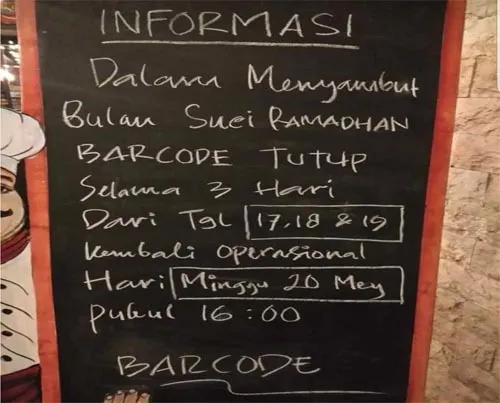 INFORMASI
Dalam Menyambut
Bulan Suci RAMADHAN
BARCODE TUTUP
Selama 3 Hari
Dari Tgl 17,18 & 19
Kembali Operasional
Hari Minggu 20 Mey
pukul 16:00
BARCODE